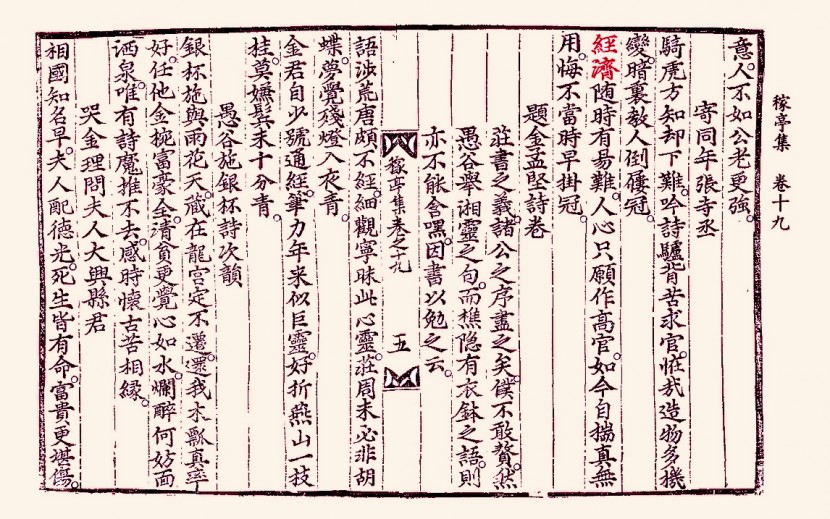 稼亭集 卷十九
意人不如公老更強。
寄同年張寺丞
騎虎方知却下難。吟詩驢背苦求官。恠哉造物多機
變。暗裏教人倒屨冠。
經濟随時有易難。人心只願作高官。如今自揣真無
用。悔不當時早掛冠。
題金孟堅詩卷
莊書之義。諸公之序盡之矣。僕不敢贅。然
愚谷舉湘靈之句。而樵隐有衣鉢之語。則
亦不能含嘿。因書以勉之云。
稼亭集卷之十九 五
語涉荒唐頗不經。細觀寧昧此心靈。莊周未必非胡
蝶。夢覺殘燈入夜青。
金君自少號通經。筆力年来似巨靈。好折燕山一枝
桂。莫嫌鬂末十分青。
愚谷施銀杯詩次韻
銀杯施與雨花天。藏在龍宫定不還。還我木瓢真率
好。任他金椀富豪全。清貧更覺心如水。爛醉何妨面
洒泉。唯有詩魔推不去。感時懷古苦相縁。
哭金理問夫人大興縣君
相國知名早。夫人配德光。死生皆有命。富貴更堪傷。